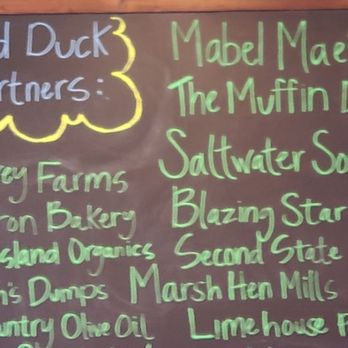 d Duck
rtners:
ey Farms
ron Bakery
sland Organics
n's Dumps
untry Olive Oil
Mabel Mae
The Muffin
Saltwater So
Blazing Star
Second State
Marsh Hen Mills
Limehouse